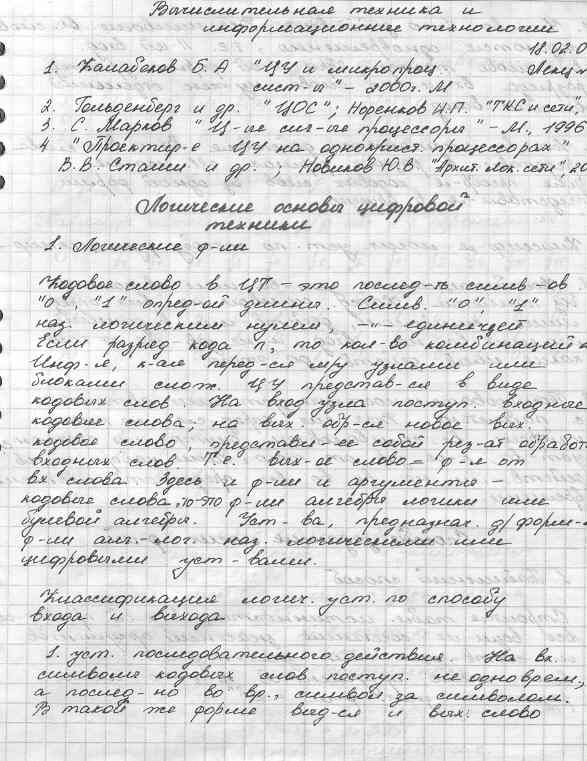 Вычислительная техника и
информационные технологии
18.02.0
1. Калабеков Б.А "ЦУ и микропроц. Лекц
сист-ы" – 2000г. М
2. Гольденберг и др. "ЦОС"; Норенков И.П. "ТКС и сети"
3. С. Марков "Ц-ые сиг-ые процессоры" – М., 1996
4 "Проектир-е ЦУ на однокрист. процессорах"
В.В. Сташин и др., Новиков Ю.В "Архит. лок. сети", 20
Логические основы цифровой
техники
1. Логические ф-ии
Кодовое слово в ЦТ – это послед-ть симв-ов
"0", "1" опред-ой длины. Симв. "0", "1"
наз. логическим нулем, –"– единицей
Если разряд кода n, то кол-во комбинаций
Инф-я, к-ая перед-ся м/у узлами или
блоками слож. ЦУ представ-ся в виде
кодовых слов. На вход узла поступ. входные
кодовые слова; на вых. обр-ся новое вых.
кодовое слово, представл-ее собой рез-ат обработ
входных слов Т.е. вых-ое слово = ф-я от
вх. слова. Здесь и ф-ии и аргументы –
кодовые слова, то это ф-ии алгебры логики или
булевой алгебры. Уст-ва, предназнач. д/форм-
ф-ии алг.-лог. наз. логическими или
цифровыми уст-вами.
Классификация логич. уст. по способу
входа и выхода
1. уст. последовательного действия. На вх.
символы кодовых слов поступ. не одноврем.,
а послед-но во вр., символ за символом.
В такой же форме выд-ся и вых. слово